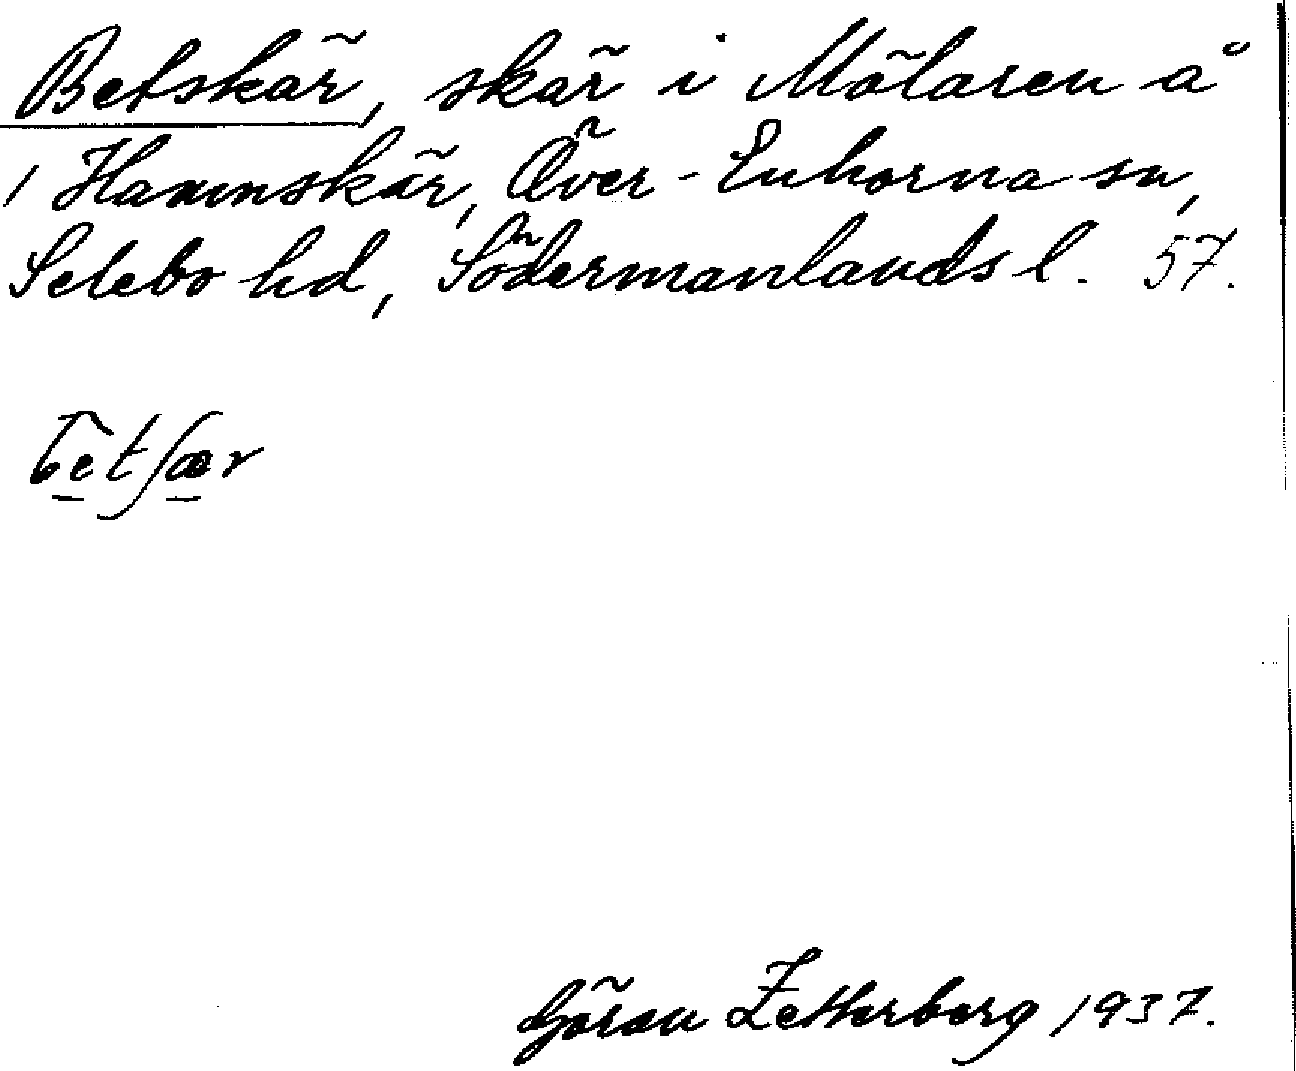 Betskär, skär i Mälaren å
/ Hamnskär, Över-Enhorna sn,
Selebo hd, Södermanlands l. 57.
betʃær
Göran Zetterberg 1937.